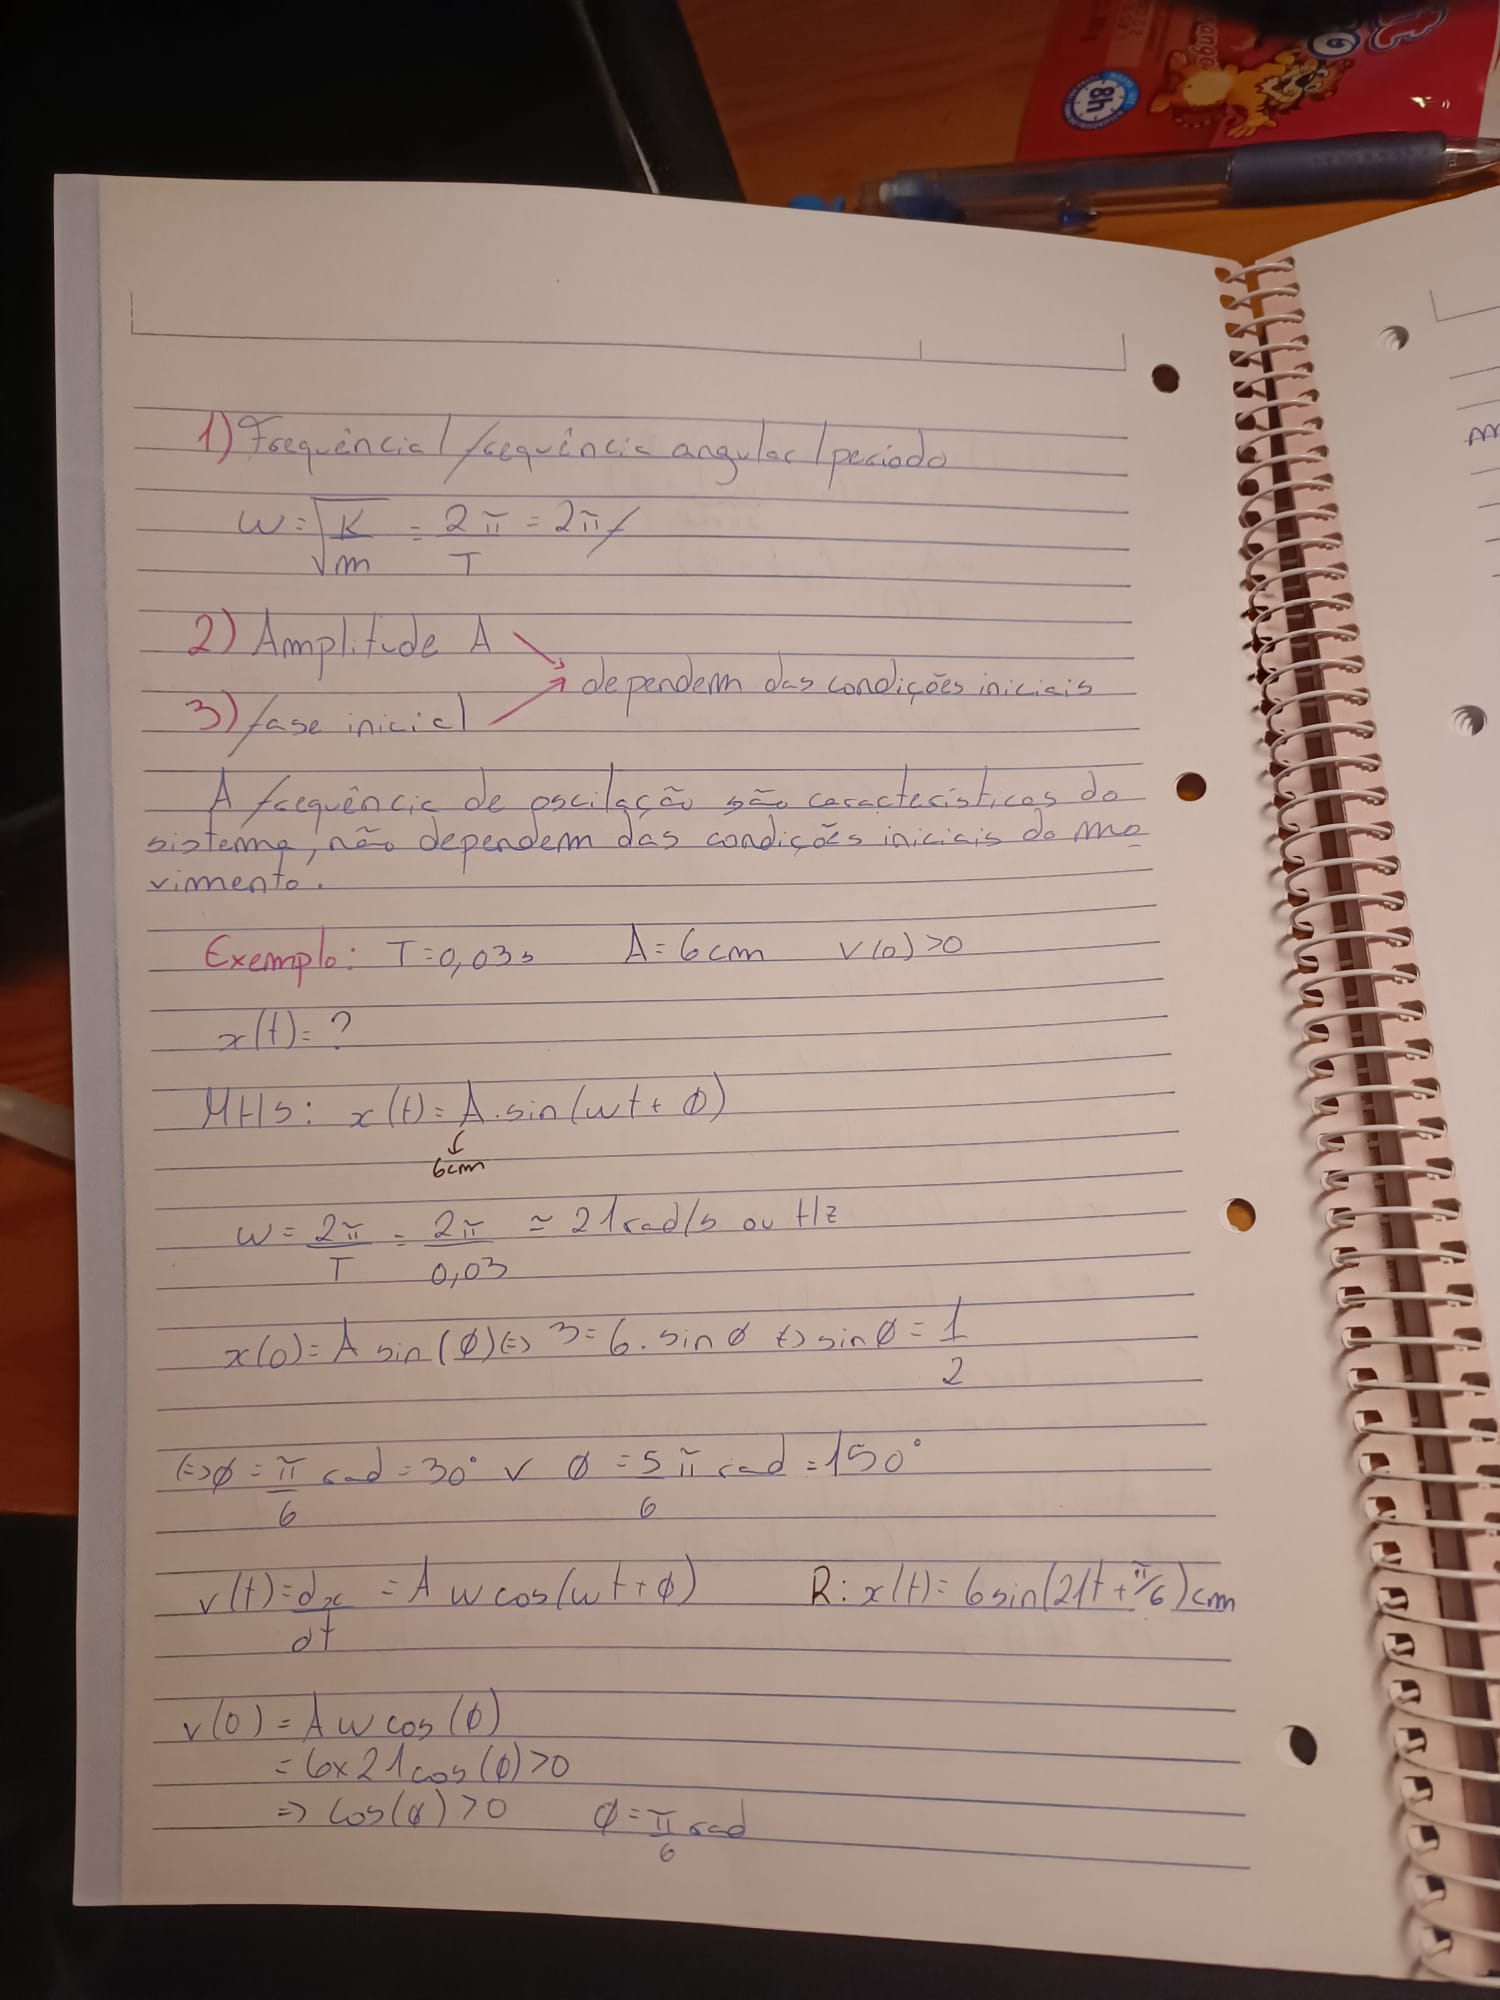 8h
1) Frequência/frequência angular/período
w=√K/m = 2π/T = 2πf
2) Amplitude A
dependem das condições iniciais
3) fase inicial
A frequência de oscilação são características do
sistema, não dependem das condições iniciais do mo
vimento.
Exemplo: T=0,03s A=6cm v(0)>0
x(t)=?
MHS: x(t)=A.sin(wt+ϕ)
6cm
w=2π/T = 2π/0,03 ≃ 21rad/s ou Hz
x(0)=A sin(ϕ)⇔ 3=6.sinϕ ⇔ sinϕ=1/2
⇔ϕ=π/6 rad=30° v ϕ=5π/6 rad=150°
v(t)=dx/dt =A w cos(wt+ϕ) R: x(t)=6sin(21t+π/6)cm
v(0)=A w cos(ϕ)
=6x21cos(ϕ)>0
⇒ cos(ϕ)>0 ϕ=π/6 rad